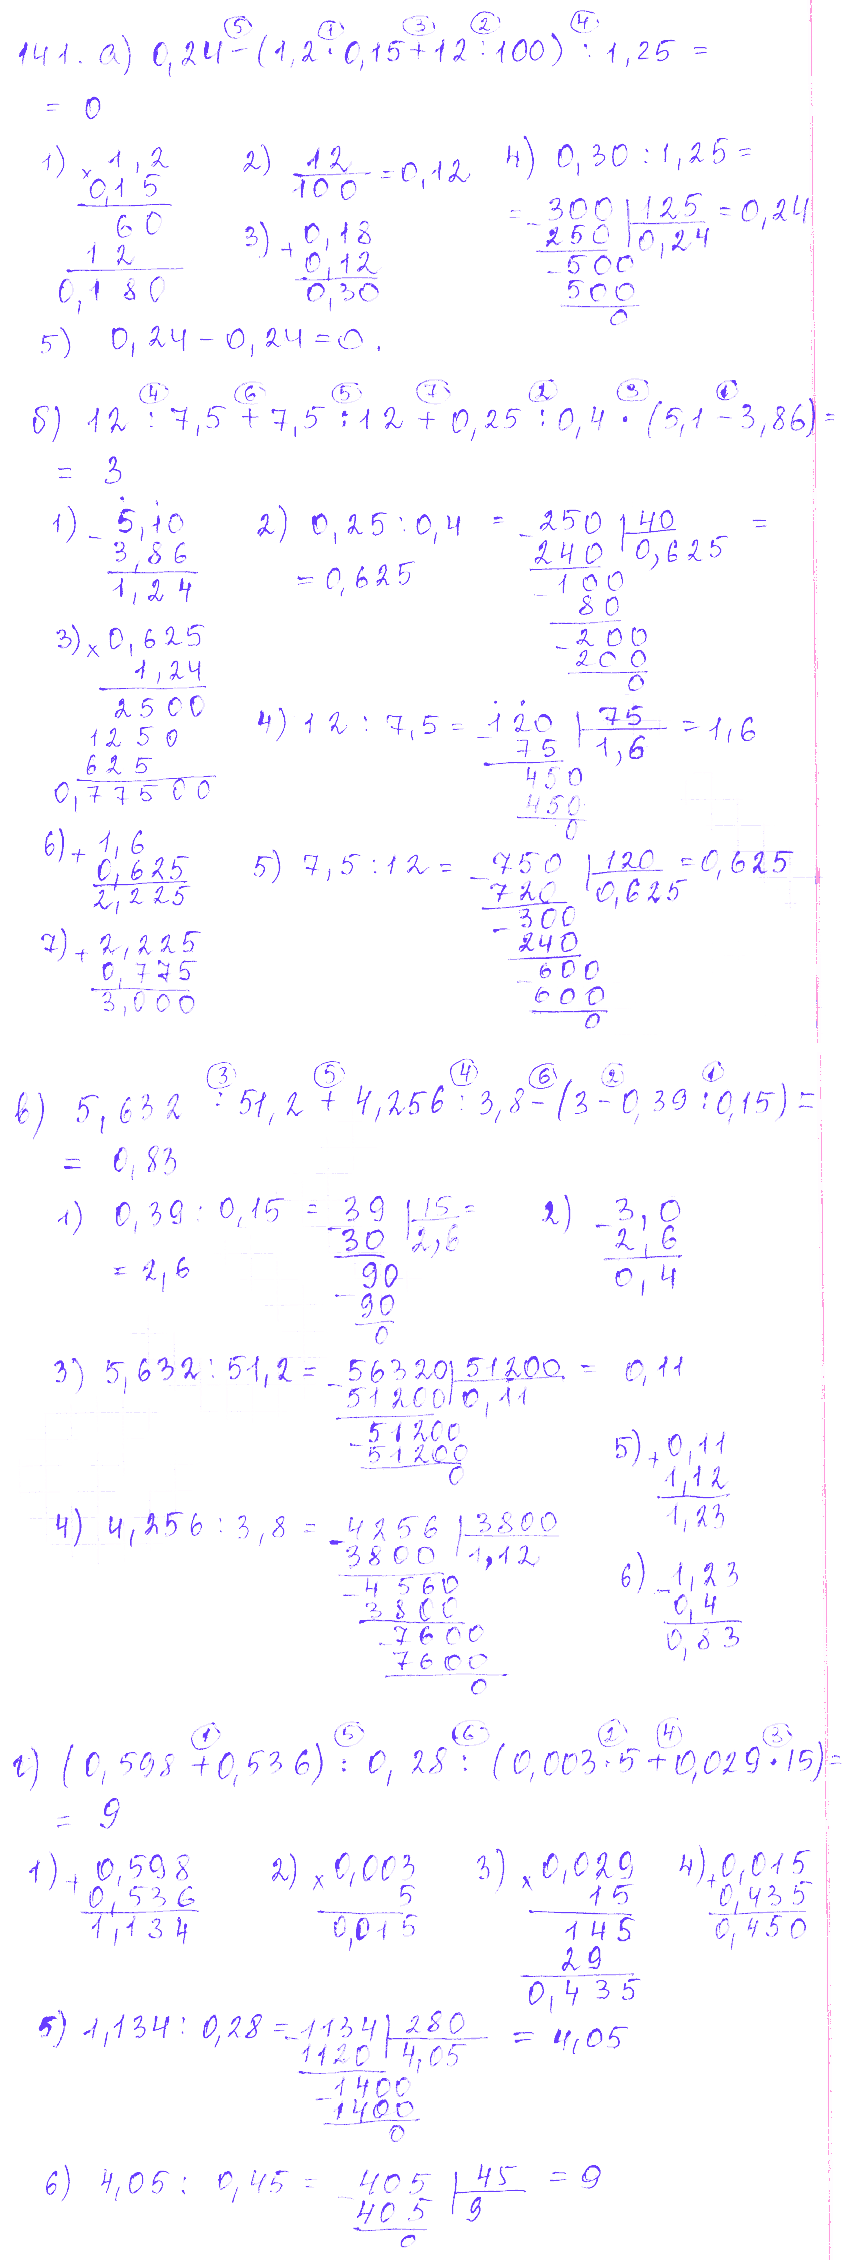 141. а) 0,24 - (1,2 · 0,15 + 12 : 100) : 1,25 =
⑤ ① ③ ② ④
= 0
1) × 1,2
0,15
60
12
0,180
2) 12/100 = 0,12
3) + 0,18
0,12
0,30
4) 0,30 : 1,25 =
= - 300 | 125 = 0,24
250 | 0,24
- 500
500
0
5) 0,24 - 0,24 = 0.
④ ⑥ ⑤ ⑦ ② ③ ①
б) 12 : 7,5 + 7,5 : 12 + 0,25 : 0,4 · (5,1 - 3,86) =
= 3
1) - 5,10
3,86
1,24
2) 0,25 : 0,4 = - 250 | 40 =
240 | 0,625
= 0,625
- 100
80
- 200
200
0
3) × 0,625
1,24
2500
1250
625
0,77500
4) 12 : 7,5 = - 120 | 75 = 1,6
75 | 1,6
450
450
0
6) + 1,6
0,625
2,225
5) 7,5 : 12 = - 750 | 120 = 0,625
720 | 0,625
- 300
240
- 600
600
0
7) + 2,225
0,775
3,000
③ ⑤ ④ ⑥ ② ①
в) 5,632 : 51,2 + 4,256 : 3,8 - (3 - 0,39 : 0,15) =
= 0,83
1) 0,39 : 0,15 = - 39 | 15 =
30 | 2,6
= 2,6
- 90
90
0
2) - 3,0
2,6
0,4
3) 5,632 : 51,2 = - 56320 | 51200 = 0,11
51200 | 0,11
- 51200
51200
0
5) + 0,11
1,12
1,23
4) 4,256 : 3,8 = - 4256 | 3800
3800 | 1,12
- 4560
3800
- 7600
7600
0
6) - 1,23
0,4
0,83
① ⑤ ⑥ ② ④ ③
г) (0,598 + 0,536) : 0,28 : (0,003 · 5 + 0,029 · 15) =
= 9
1) + 0,598
0,536
1,134
2) × 0,003
5
0,015
3) × 0,029
15
145
29
0,435
4) + 0,015
0,435
0,450
5) 1,134 : 0,28 = - 1134 | 280 = 4,05
1120 | 4,05
- 1400
1400
0
6) 4,05 : 0,45 = - 405 | 45 = 9
405 | 9
0